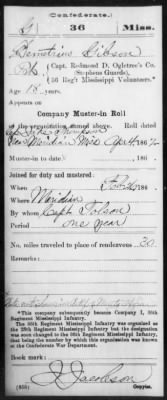 (Confederate.)
G 36 Miss.
Gibson
(Capt. Redmond D. Ogletree's Co.
Stephens Guards),
36 Reg't Mississippi Volunteers.*
Age 18 years.
Appears on
Company Muster-in Roll
of the organization named above. Roll dated
Meridian Miss, 186
Muster-in to date , 186 .
Joined for duty and mustered:
When Feb 186 .
Where Meridian
By whom Capt.
Period one year
No. miles traveled to place of rendezvous 20
Remarks:
*This company subsequently became Company I, 36th
Regiment Mississippi Infantry.
The 36th Regiment Mississippi Infantry was organized as
the 29th Regiment Mississippi Infantry but the designation
was soon changed to the 36th Regiment Mississippi Infantry,
that being the number by which this organization was known
at the Confederate War Department.
Book mark:
J. Jacobson
Copyist.